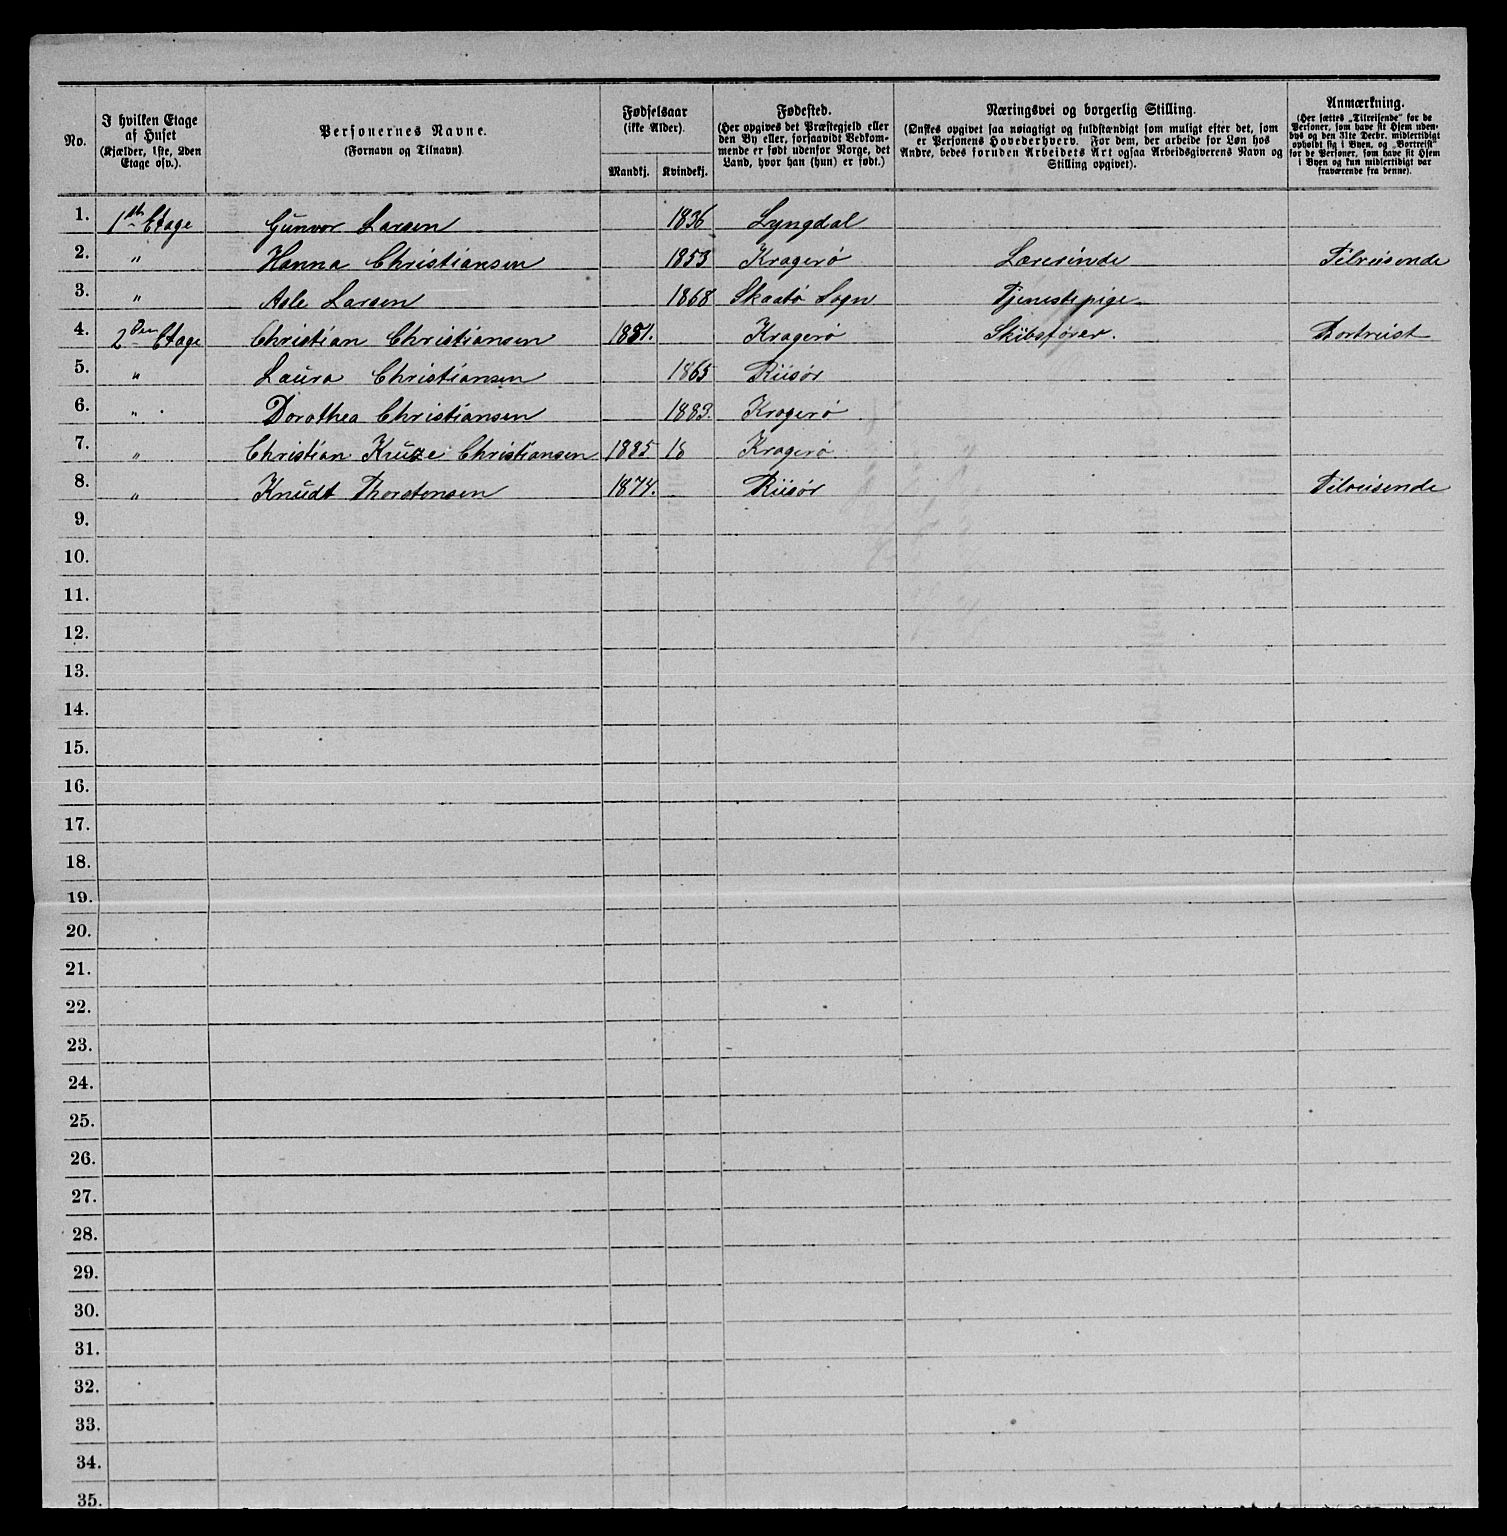 No.
I hvilken Etage af Huset (Kjælder, 1ste, 2den Etage osv.).
Personernes Navne. (Fornavn og Tilnavn)
Fødselsaar (ikke Alder).
Mandkj. Kvindekj.
Fødested. (Her opgives det Præstegjeld eller den By eller, forsaavidt Vedkommende er født udenfor Norge, det Land, hvor han (hun) er født.)
Næringsvei og borgerlig Stilling. (Ønskes opgivet saa nøiagtigt og fuldstændigt som muligt efter det, som er Personens Hovederhverv. For dem, der arbeide for Løn hos Andre, bedes foruden Arbeidets Art ogsaa Arbeidsgiverens Navn og Stilling opgivet).
Anmærkning. (Her sættes „Tilreisende" for de Personer, som have sit Hjem udenbys og den 31te Decbr. midlertidigt opholdt sig i Byen, og „Bortreist" for de Personer, som have sit Hjem i Byen og kun midlertidigt var fraværende fra denne).
1. 1ste Etage Gunvor Larsen 1836 Lyngdal
2. " Hanna Christiansen 1853 Kragerø Lærerinde Tilreisende
3. " Asle Larsen 1868 Skaatø Sogn Tjenestepige
4. 2den Etage Christian Christiansen 1851. Kragerø Skibsfører. Bortreist
5. " Laura Christiansen 1865 Riisør
6. " Dorothea Christiansen 1883. Kragerø
7. " Christian Kruze Christiansen 1885 18 Kragerø
8. " Knudt Thorstensen 1874. Riisør Tilreisende
9.
10.
11.
12.
13.
14.
15.
16.
17.
18.
19.
20.
21.
22.
23.
24.
25.
26.
27.
28.
29.
30.
31.
32.
33.
34.
35.